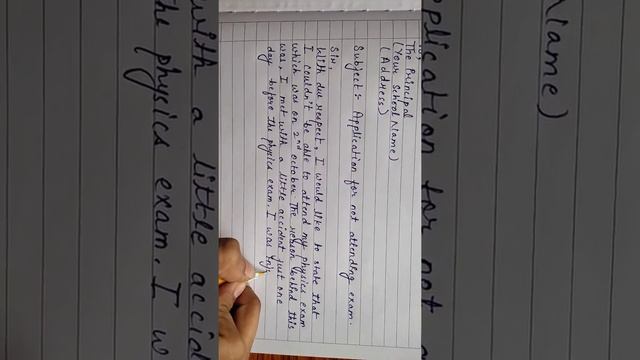 To,
The Principal
(Your School Name)
(Address)
Subject:- Application for not attending exam.
Sir,
With due respect, I would like to state that
I couldn't be able to attend my physics exam
which was on 2nd october. The reason behind this
was, I met with a little accident just one
day before the physics exam. I was inj